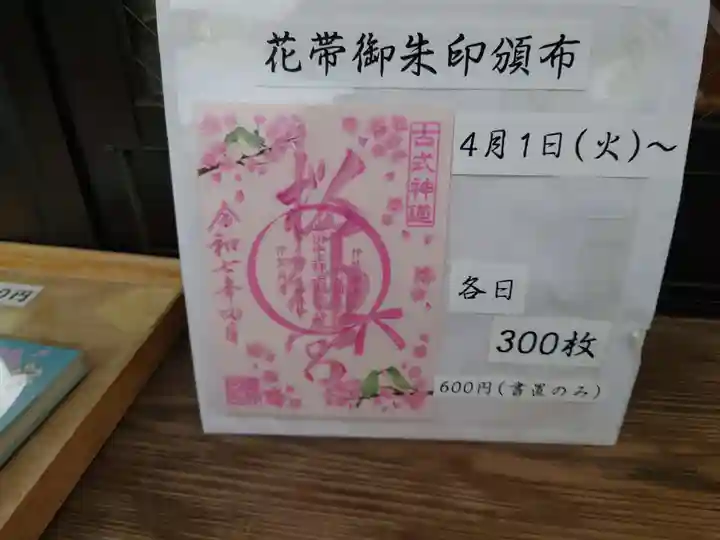 花帯御朱印頒布
4月1日(火)~
各日
300枚
600円(書置のみ)
古式神道
桜神宮
令和七年四月
0円